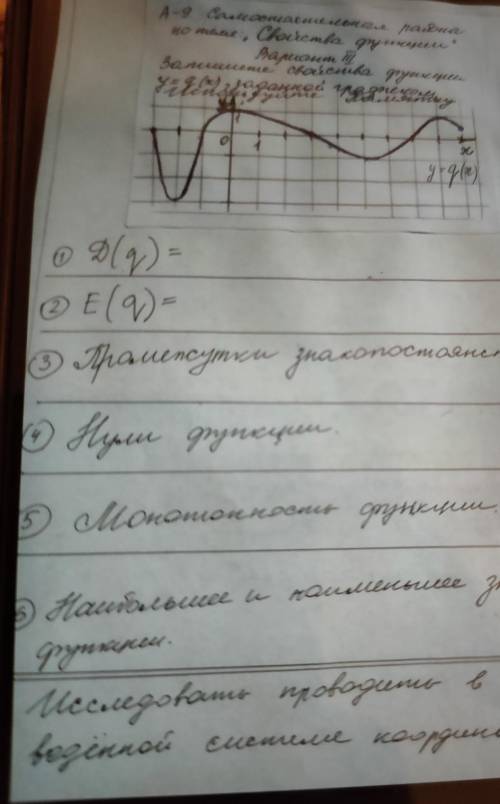 А-9 Самостоятельная работа
по теме „Свойства функции"
Вариант III
Запишите свойства функции
y = q(x) заданной графиком
Используйте памятку
0 1 x
y = q(x)
① D(q) =
② E(q) =
③ Промежутки знакопостоянст
④ Нули функции.
5 Монотонность функции.
6 Наибольшее и наименьшее зн
функции.
Исследовать проводить в
ведённой системе координ